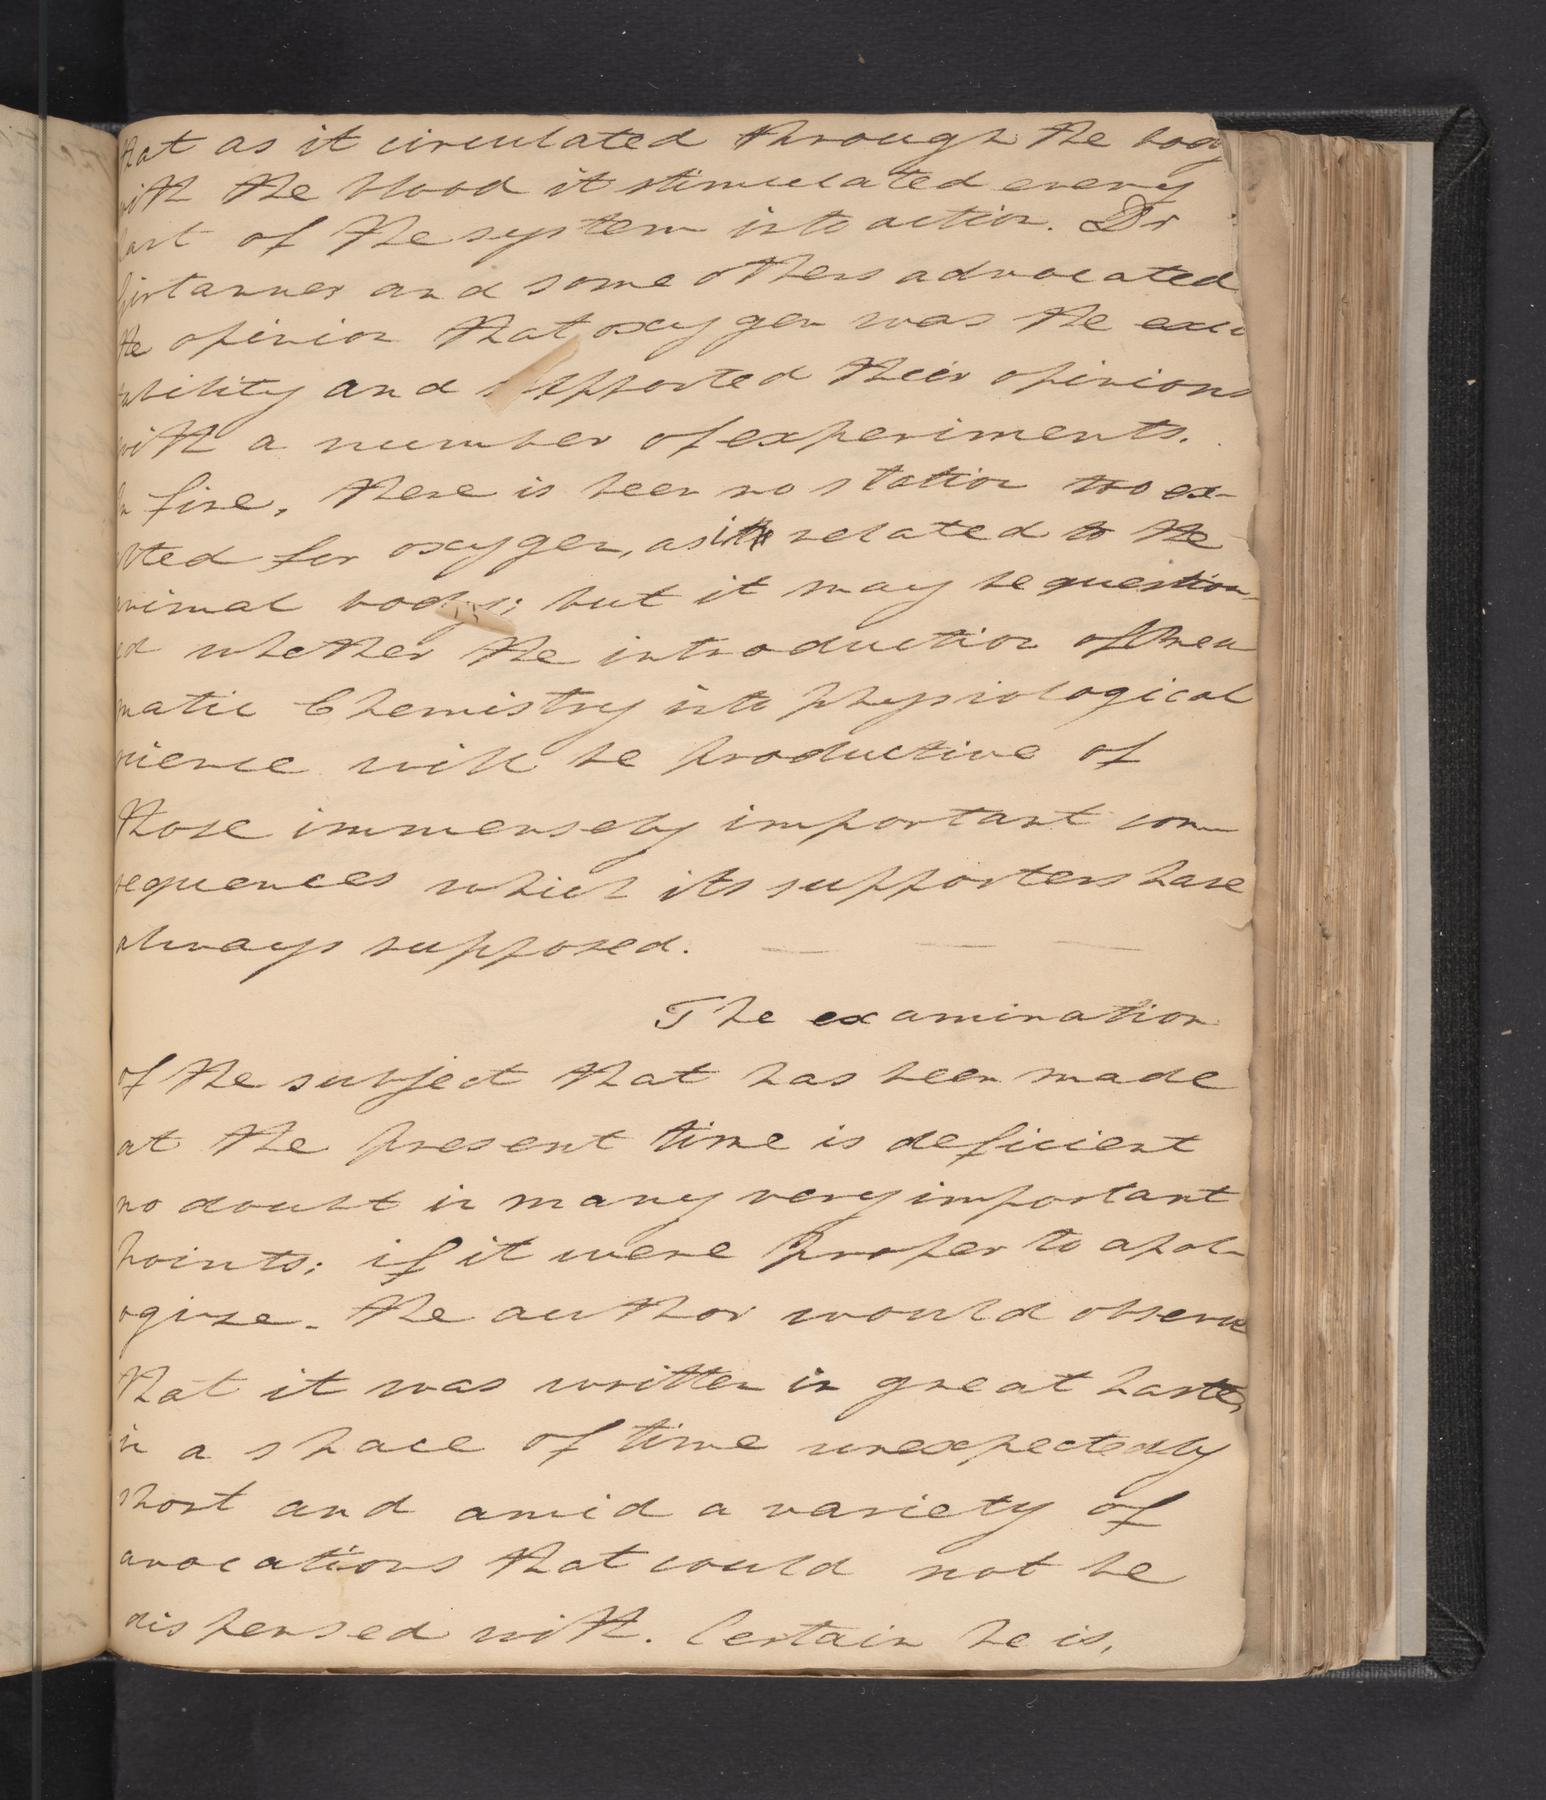 that as it circulated through the body
with the blood it stimulated every
part of the system into action. Dr
Girtanner and some others advocated
the opinion that oxygen was the exci
tability and supported their opinions
with a number of experiments.
In fine, there is been no station too ex-
alted for oxygen, as it related to the
animal body; but it may be question-
ed whether the introduction of Pneu
matic Chemistry into physiological
science will be productive of
those immensely important con-
sequences which its supporters have
always supposed.
The examination
of the subject that has been made
at the present time is deficient
no doubt in many very important
points; if it were proper to apol-
ogize. the author would observe
that it was written in great haste,
in a space of time unexpectedly
short and amid a variety of
avocations that could not be
dispensed with. Certain he is,